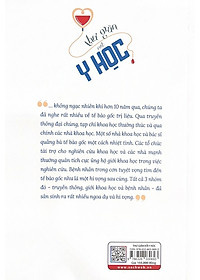 Thư giãn
với
Y HỌC
... không ngạc nhiên khi hơn 10 năm qua, chúng ta
đã nghe rất nhiều về tế bào gốc trị liệu. Qua truyền
thông đại chúng, tạp chí khoa học thường thức và qua
chính các nhà khoa học. Một số nhà khoa học và bác sĩ
quảng bá tế bào gốc một cách nhiệt tình. Các tổ chức
tài trợ cho nghiên cứu khoa học và các nhà mạnh
thường quân tích cực ủng hộ giới khoa học trong việc
nghiên cứu. Bệnh nhân trong cơn tuyệt vọng tìm đến
tế bào gốc như là một hi vọng sau cùng. Tất cả 3 nhóm
đó - truyền thông, giới khoa học và bệnh nhân - đã
sản sinh ra rất nhiều ngoa dụ và hi vọng.